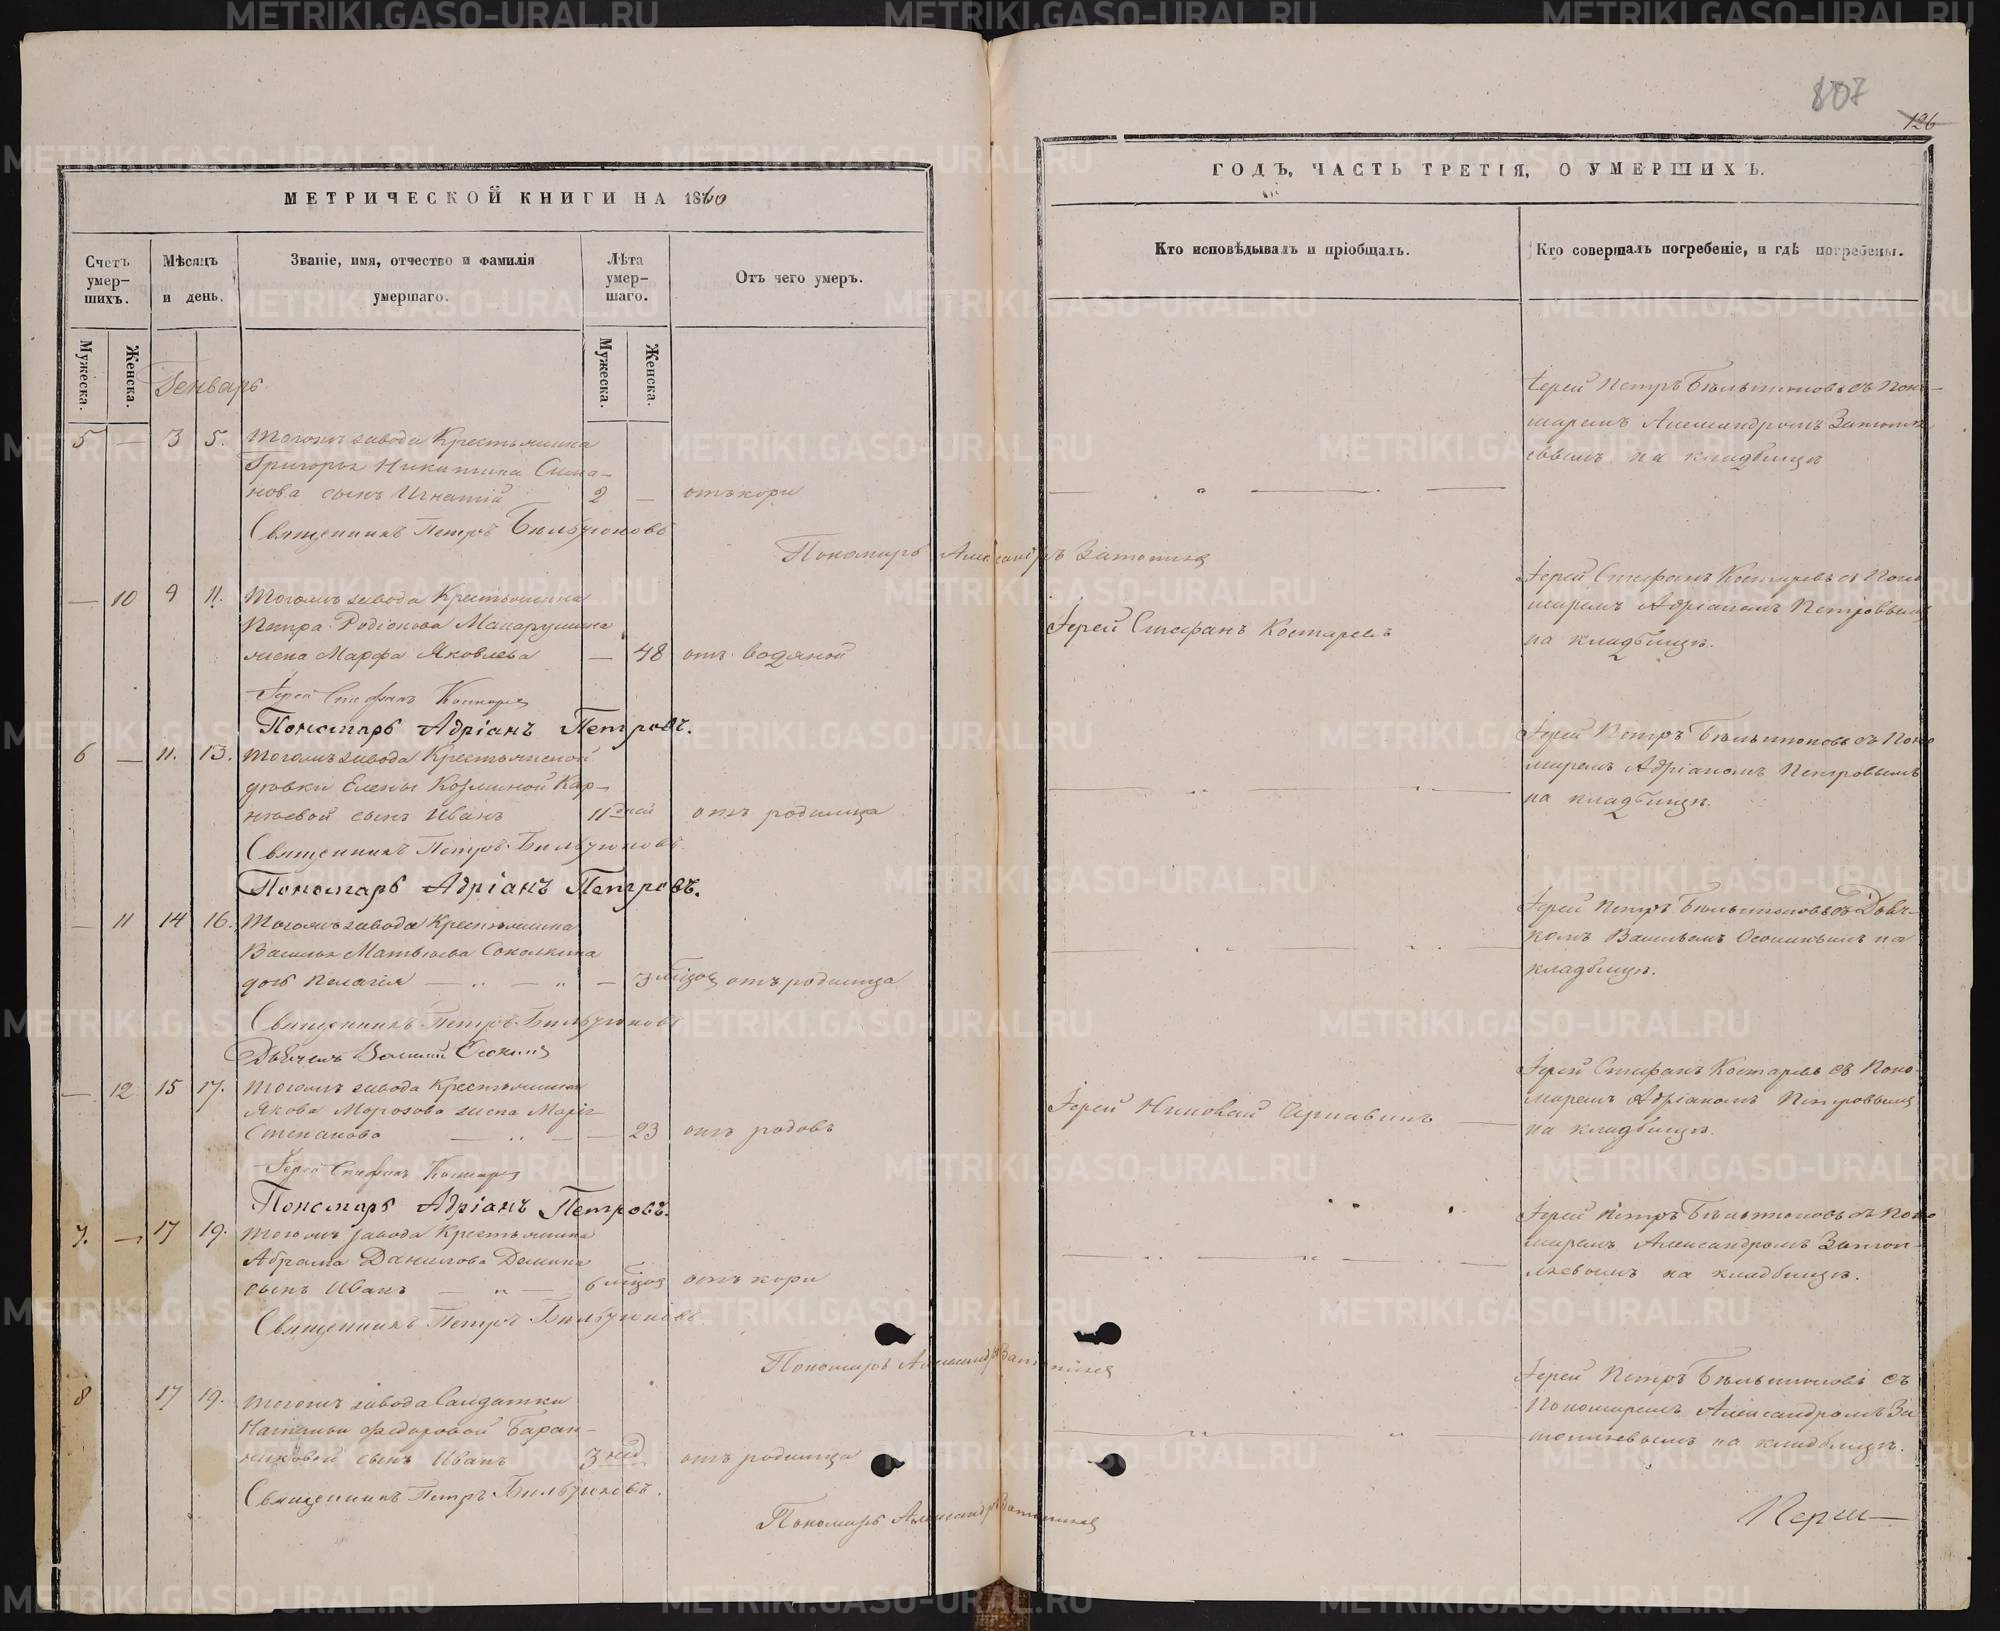 807
126
МЕТРИЧЕСКОЙ КНИГИ НА 1860
ГОДЪ, ЧАСТЬ ТРЕТІЯ, О УМЕРШИХЪ.
Счетъ умер-шихъ.
Мѣсяцъ и день.
Званіе, имя, отчество и фамилія умершаго.
Лѣта умер-шаго.
Отъ чего умеръ.
Кто исповѣдывалъ и пріобщалъ.
Кто совершалъ погребеніе, и гдѣ погребены.
Мужеска.
Женска.
Мужеска.
Женска.
Генварь
5 — 3 5. Тогожъ завода Крестьянина
Григорья Никитина Сима-
нова сынъ Игнатій 2 — отъ кори
Іерей Петръ Бѣльтюковъ съ Поно-
маремъ Александромъ
на кладбищѣ
Священникъ Петръ Бѣльтюковъ
Пономарь Александръ
— 10 9 11. Тогожъ завода Крестьянина
Петра Родіонова Макарушина
жена Марфа Яковлева — 48 отъ водяной
Іерей Стефанъ Костаревъ
Іерей Стефанъ Костаревъ съ Поно-
маремъ Адріаномъ Петровымъ
на кладбищѣ.
Іерей Стефанъ Костаревъ
Пономарь Адріанъ Петровъ.
6 — 11. 13. Тогожъ завода Крестьянской
дѣвки Елены Козминой Кар-
сынъ Иванъ 11 дней отъ родимца
Іерей Петръ Бѣльтюковъ съ Поно
маремъ Адріаномъ Петровымъ
на кладбищѣ.
Священникъ Петръ Бѣльтюковъ
Пономарь Адріанъ Петровъ.
— 11 14 16. Тогожъ завода Крестьянина
Василья Матвѣева Соколкина
дочь Пелагія — 3 мѣсяц отъ родимца
Іерей Петръ Бѣльтюковъ съ Дьяч-
комъ Васильемъ на
кладбищѣ.
Священникъ Петръ Бѣльтюковъ
Дьячекъ Василій
— 12 15 17. Тогожъ завода Крестьянина
Якова Морозова жена Марія
Степанова — 23 отъ родовъ
Іерей Николай
Іерей Стефанъ Костаревъ съ Поно-
маремъ Адріаномъ Петровымъ
на кладбищѣ.
Іерей Стефанъ Костаревъ
Пономарь Адріанъ Петровъ.
7. — 17 19. Тогожъ завода Крестьянина
Абрама Данилова Демина
сынъ Иванъ 6 мѣсяц отъ кори
Іерей Петръ Бѣльтюковъ съ Поно
маремъ Александромъ
на кладбищѣ.
Священникъ Петръ Бѣльтюковъ
Пономарь Александръ
8 17 19. Тогожъ завода Салдатки
Натальи Ѳедоровой Баран-
никовой сынъ Иванъ 3 нед. отъ родимца
Іерей Петръ Бѣльтюковъ съ
Пономаремъ Александромъ
на кладбищѣ.
Священникъ Петръ Бѣльтюковъ.
Пономарь Александръ
METRIKI.GASO-URAL.RU